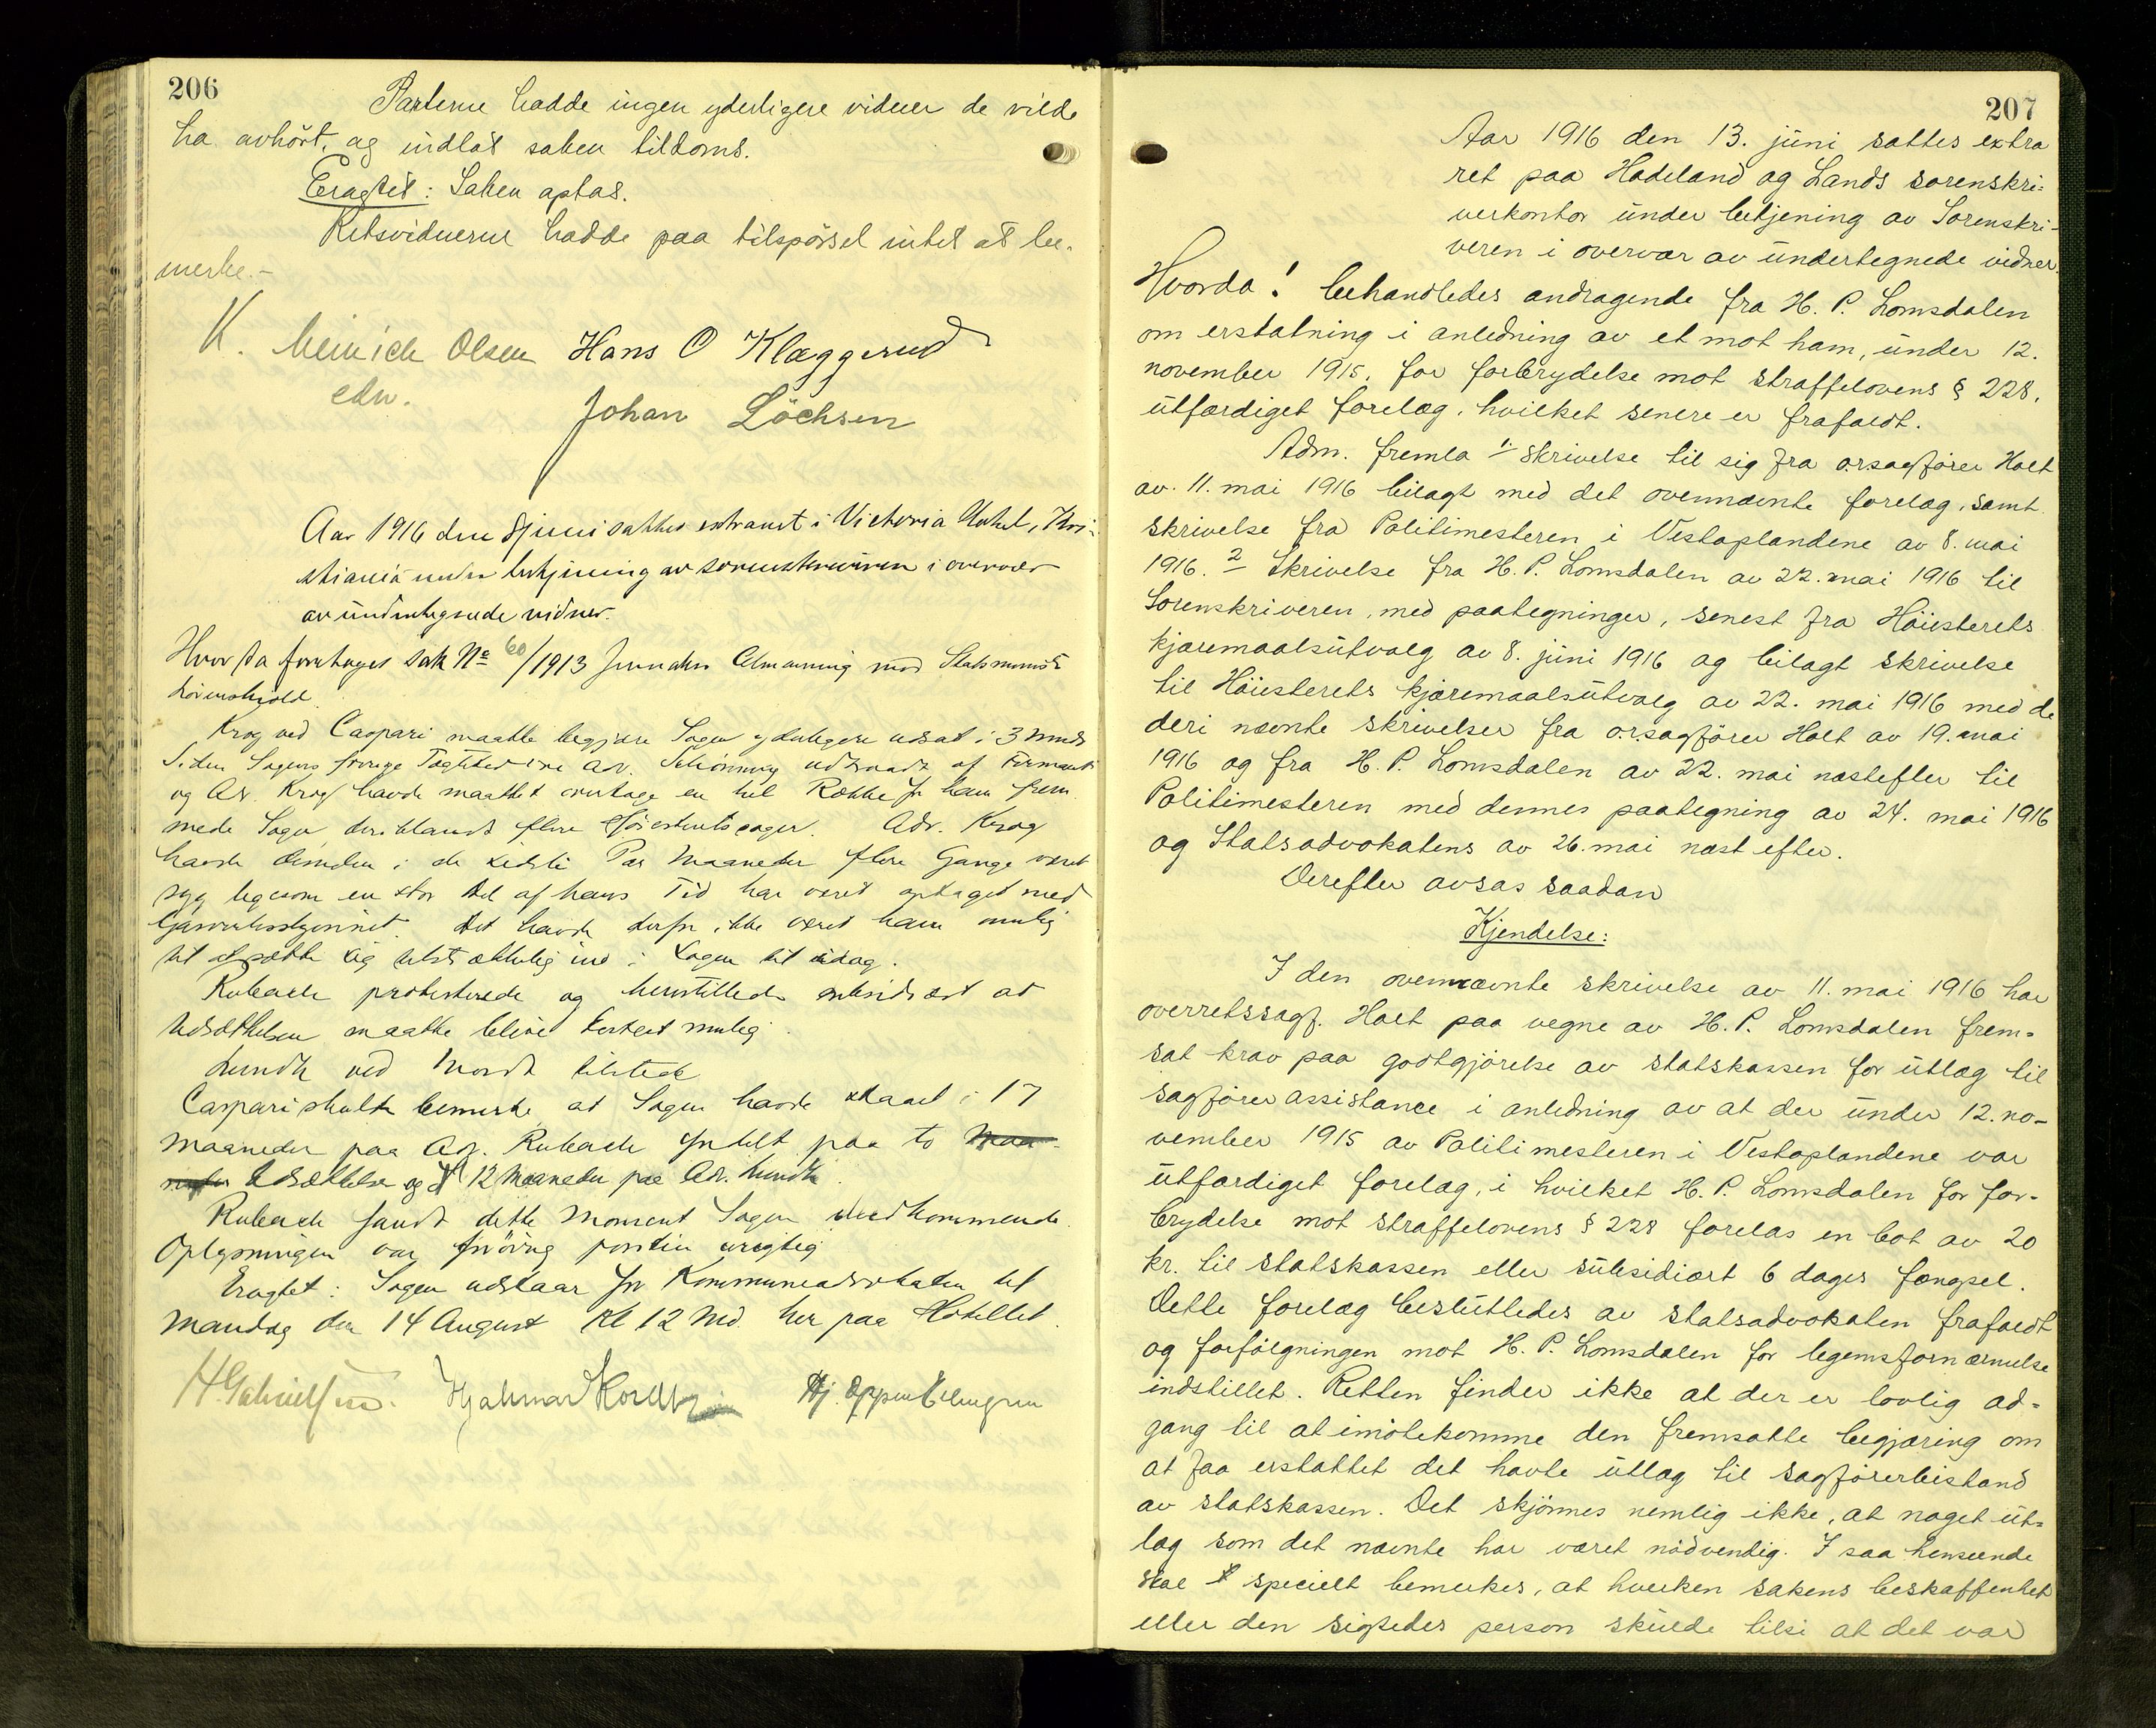 206
Parterne hadde ingen yderligere vidner de vilde
ha avhört, og indlot saken tildoms.
Eragtet: Saken optas.
Retsvidnerne hadde paa tilspörsel intet at be-
merke.-
K. Meinich Olsen Hans O Klæggerud
edw. Johan Löchsen
Aar 1916 den 8 juni sattes extraret i Victoria Hotel, Kri-
stiania under betjening av sorenskriveren i overvær
av undertegnede vidner.
Hvorda foretoges sak No 60/1913 Jevnaker Almenning mod Statsminist
Lövenskiold.
Krog ved Caspari maatte begjære Sagen yderligere udsat i 3 Mndr
Siden Sagens forrige Tægtedag var Adv. Schönning udtraadt af Firmaet
og Adv. Krog havde maattet overtage en hel Række for ham frem-
mede Sager, deriblandt flere Höiesteretssager. Adv. Krog
havde desuden i de sidste Par Maaneder flere Gange været
syg ligesom en stor Del af hans Tid har været optaget med
Det havde derfor ikke været ham mulig
at sætte sig tilstrækkelig ind i Sagen til idag.
Rubach protesterede og henstillede subsidiært at
Udsættelsen maatte blive kortest mulig.
Lundh ved Mordt tilstede
Caspari skulde bemerke at Sagen havde staaet i 17
Maaneder paa Adv. Rubach fordelt paa to Maa-
neder Udsættelser og 12 Maaneder paa Adv. Lundh.
Rubach fandt dette Moment Sagen uvedkommende.
Oplysningen var forövrig positiv urigtig
Eragtet: Sagen udstaar for Kommuneadvokaten til
Mandag den 14 August Kl 12 Md. her paa Hotellet.
H. Gabrielsen. Hjalmar Hj. Oppen
207
Aar 1916 den 13. juni sattes extra
ret paa Hadeland og Lands sorenskri-
verkontor under betjening av Sorenskri-
veren i overvær av undertegnede vidner.
Hvorda! behandledes andragende fra H. P. Lomsdalen
om erstatning i anledning av et mot ham, under 12.
november 1915, for forbrydelse mot straffelovens § 228,
utfærdiget forelæg, hvilket senere er frafaldt.
Adm. fremla 1. skrivelse til sig fra o.r.sagförer Holt
av 11. mai 1916 bilagt med det ovennævnte forelæg, samt
skrivelse fra Politimesteren i Vestoplandene av 8. mai
1916. 2 Skrivelse fra H. P. Lomsdalen av 22. mai 1916 til
Sorenskriveren, med paategninger, senest fra Höiesterets
kjæremaalsutvalg av 8. juni 1916 og bilagt skrivelse
til Höiesterets kjæremaalsutvalg av 22. mai 1916 med de
deri nævnte skrivelser fra o.r.sagförer Holt av 19. mai
1916 og fra H. P. Lomsdalen av 22. mai næstefter til
Politimesteren med dennes paategning av 24. mai 1916
og Statsadvokatens av 26. mai næst efter.
Derefter avsas saadan
Kjendelse:
I den ovennævnte skrivelse av 11. mai 1916 har
overretssagf. Holt paa vegne av H. P. Lomsdalen frem-
sat krav paa godtgjörelse av statskassen for utlæg til
sagförerassistance i anledning av at der under 12. no-
vember 1915 av Politimesteren i Vestoplandene var
utfærdiget forelæg, i hvilket H. P. Lomsdalen for for-
brydelse mot straffelovens § 228 forelas en bot av 20
kr. til statskassen eller subsidiært 6 dages fængsel.
Dette forelæg besluttedes av statsadvokaten frafaldt
og forfölgningen mot H. P. Lomsdalen for legemsfornærmelse
indstillet. Retten finder ikke at der er lovlig ad-
gang til at imötekomme den fremsatte begjæring om
at faa erstattet det havte utlæg til sagförerbistand
av statskassen. Det skjönnes nemlig ikke, at noget ut-
læg som det nævnte har været nödvendig. I saa henseende
skal specielt bemerkes, at hverken sakens beskaffenhet
eller den sigtedes person skulde tilsi at det var